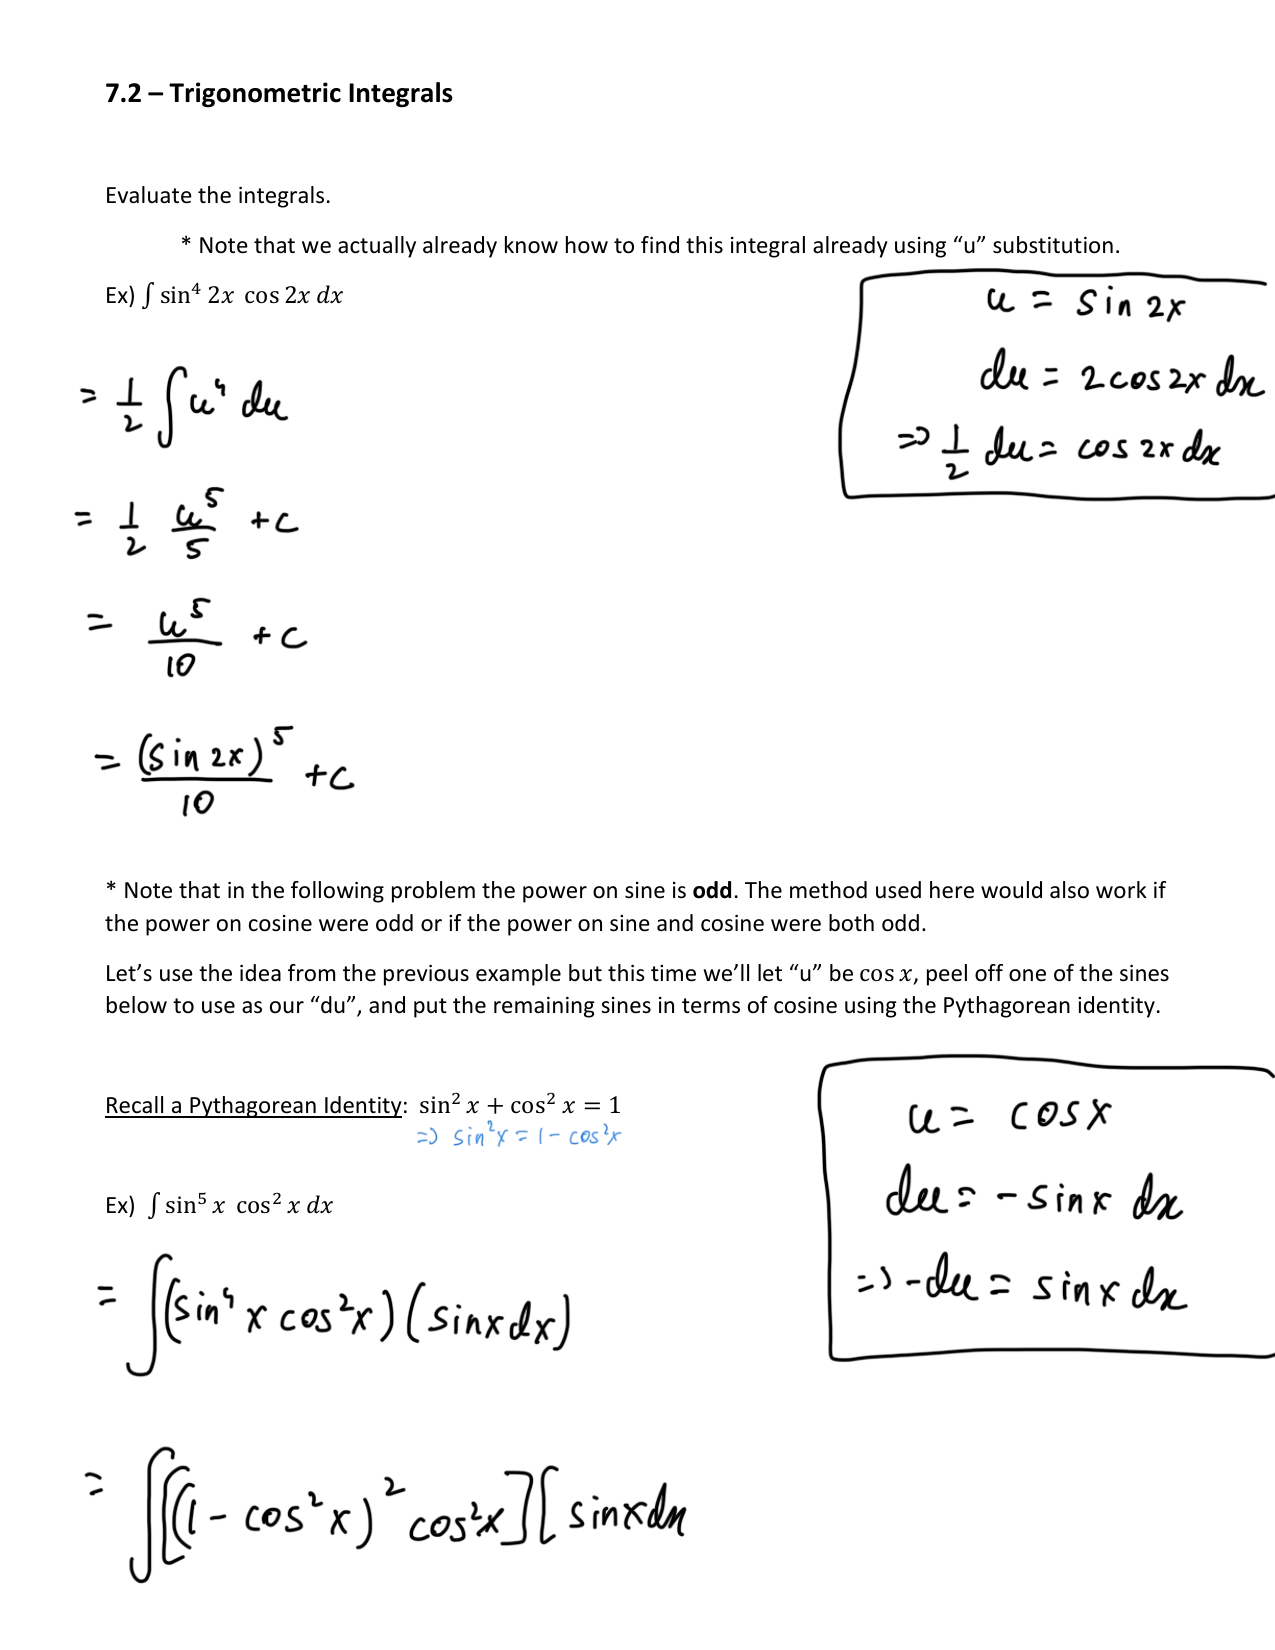 7.2 – Trigonometric Integrals
Evaluate the integrals.
* Note that we actually already know how to find this integral already using “u” substitution.
Ex) ∫ sin⁴ 2x cos 2x dx
u = sin 2x
du = 2cos2x dx
⇒ 1/2 du = cos 2x dx
= 1/2 ∫ u⁴ du
= 1/2 u⁵/5 +c
= u⁵/10 + c
= (sin 2x)⁵/10 +c
* Note that in the following problem the power on sine is odd. The method used here would also work if
the power on cosine were odd or if the power on sine and cosine were both odd.
Let’s use the idea from the previous example but this time we’ll let “u” be cos x, peel off one of the sines
below to use as our “du”, and put the remaining sines in terms of cosine using the Pythagorean identity.
Recall a Pythagorean Identity: sin² x + cos² x = 1
⇒ sin²x = 1 - cos²x
u = cosx
du = - sinx dx
⇒ -du = sinx dx
Ex) ∫ sin⁵ x cos² x dx
= ∫(sin⁴ x cos²x)(sinxdx)
= ∫[(1 - cos²x)² cos²x][sinxdx